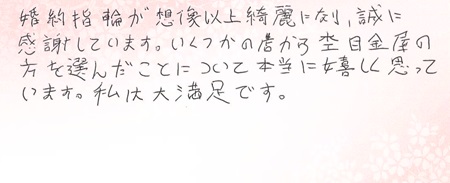 婚約指輪が想像以上綺麗に列、誠に
感謝しています。いくつかの店から杢目金屋の
方を選んだことについて本当に嬉しく思って
います。私は大満足です。